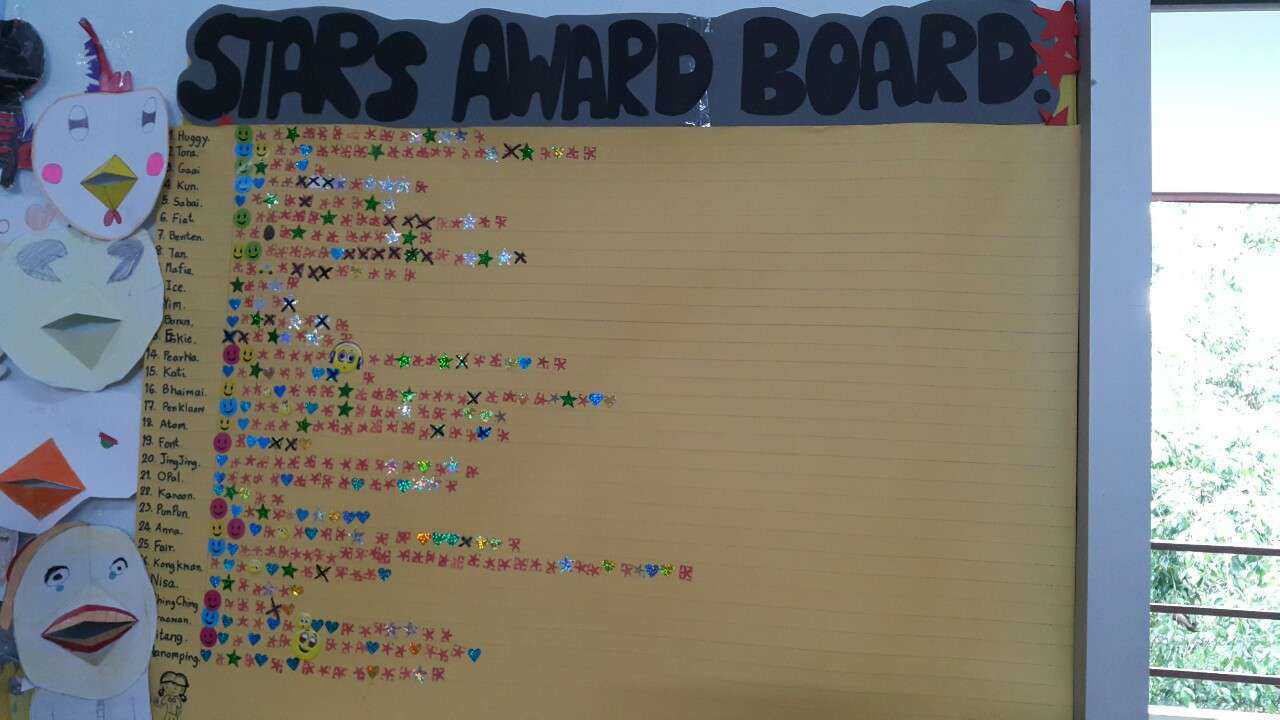 STARS AWARD BOARD.
1. Huggy.
2. Tora.
3. Gaai
4. Kun.
5. Sabai.
6. Fiat
7. Benten.
8. Tan.
Mafia
Ice.
Yim.
Eskie.
14. PearWa.
15. Kati
16. Bhaimai.
17. Penklaow
18. Atom.
19. Font.
20. JingJing.
21. OPal.
22. Kanoon.
23. PunPun.
24. Anna.
25. Fair.
Kongkwan
Nisa.
hingChing
itang.
anomping.